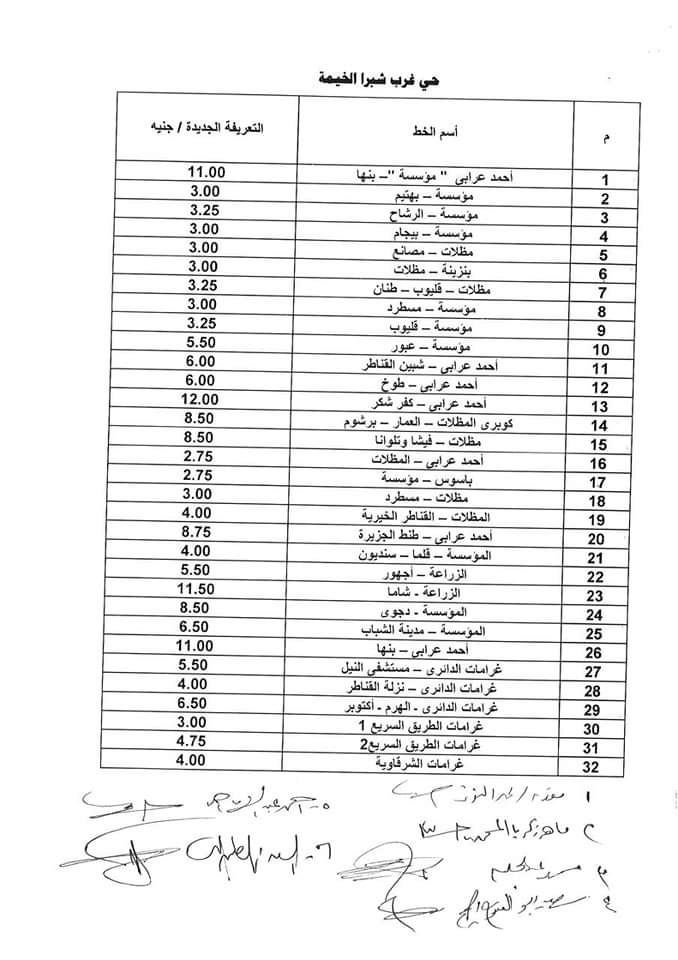 حي غرب شبرا الخيمة
م أسم الخط التعريفة الجديدة / جنيه
1 أحمد عرابي " مؤسسة "– بنها 11.00
2 مؤسسة – بهتيم 3.00
3 مؤسسة – الرشاح 3.25
4 مؤسسة – بيجام 3.00
5 مظلات – مصانع 3.00
6 بنزينة – مظلات 3.00
7 مظلات – قليوب – طنان 3.25
8 مؤسسة – مسطرد 3.00
9 مؤسسة – قليوب 3.25
10 مؤسسة – عبور 5.50
11 أحمد عرابي – شبين القناطر 6.00
12 أحمد عرابي – طوخ 6.00
13 أحمد عرابي – كفر شكر 12.00
14 كوبرى المظلات – العمار – برشوم 8.50
15 مظلات – فيشا وتلوانا 8.50
16 أحمد عرابي – المظلات 2.75
17 باسوس – مؤسسة 2.75
18 مظلات – مسطرد 3.00
19 المظلات – القناطر الخيرية 4.00
20 أحمد عرابي – طنط الجزيرة 8.75
21 المؤسسة – قلما – سنديون 4.00
22 الزراعة – أجهور 5.50
23 الزراعة - شاما 11.50
24 المؤسسة - دجوى 8.50
25 المؤسسة – مدينة الشباب 6.50
26 أحمد عرابي – بنها 11.00
27 غرامات الدائرى – مستشفى النيل 5.50
28 غرامات الدائرى – نزلة القناطر 4.00
29 غرامات الدائرى - الهرم - أكتوبر 6.50
30 غرامات الطريق السريع 1 3.00
31 غرامات الطريق السريع2 4.75
32 غرامات الشرقاوية 4.00